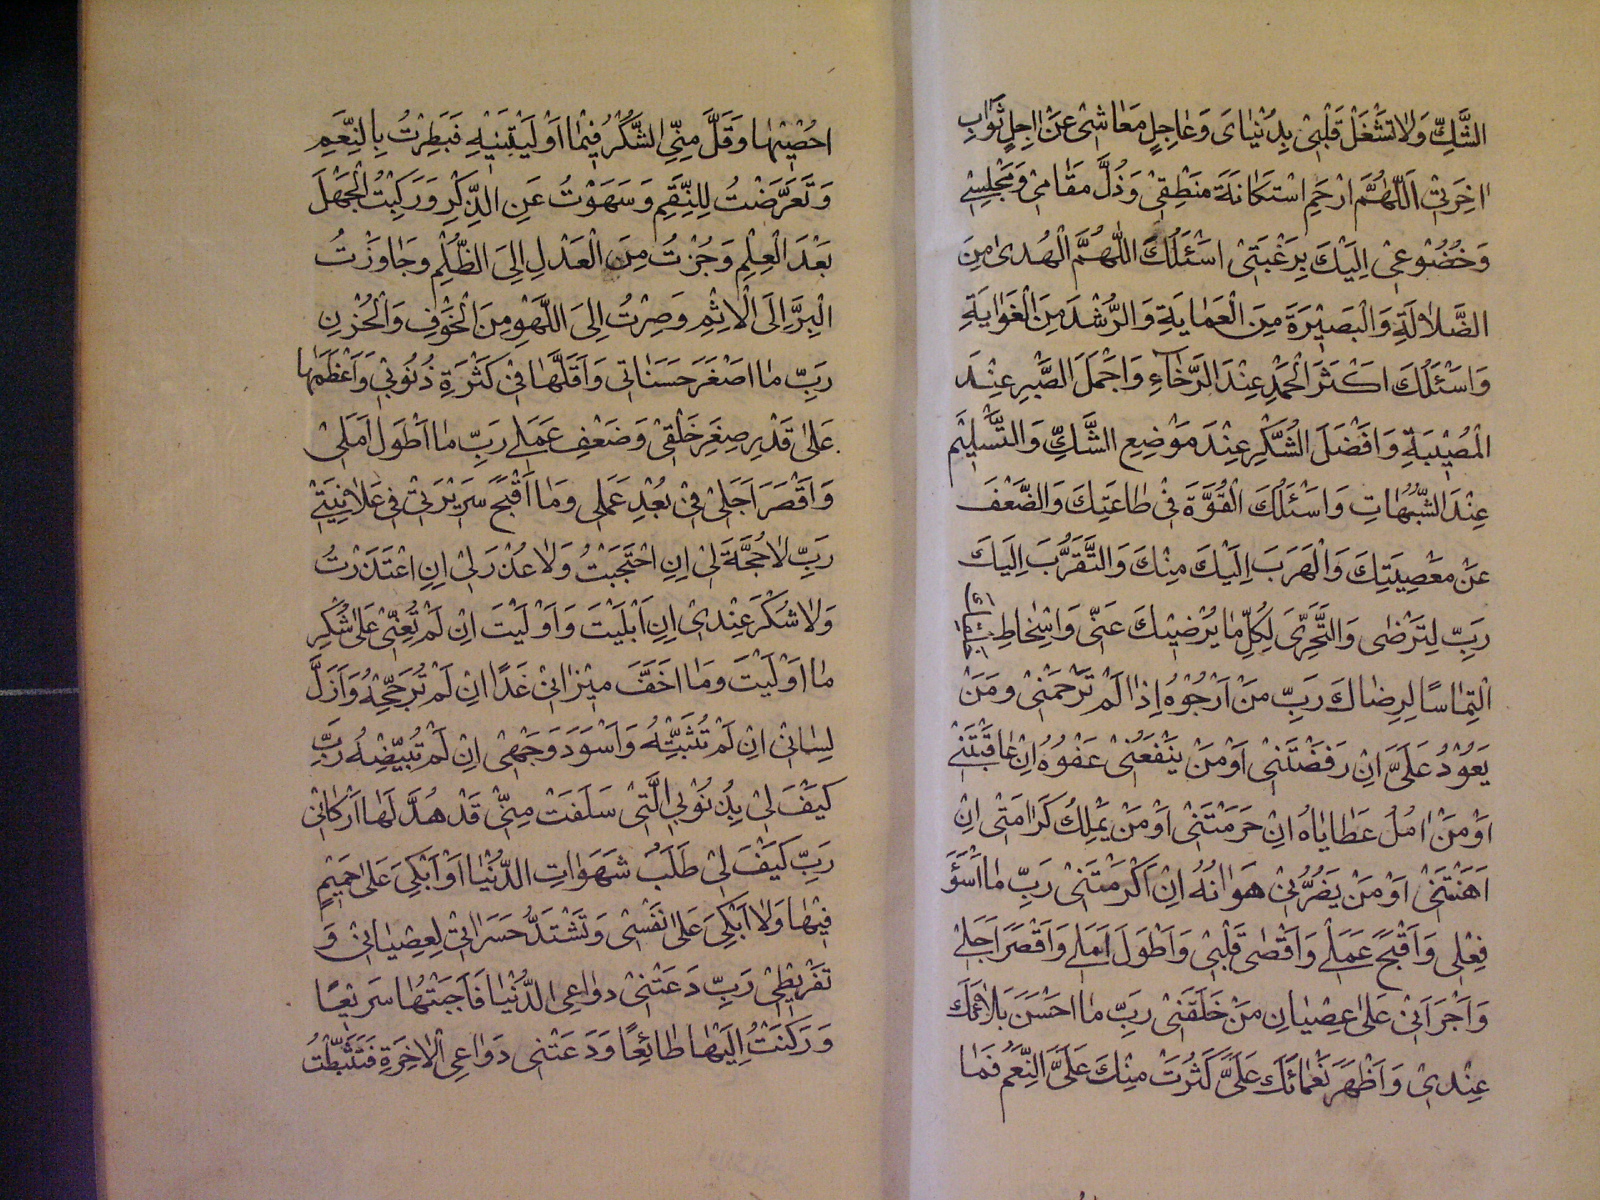 الشَّكِّ وَلاٰ تَشْغَلْ قَلْبىْ بِدُنْيٰاىَ وَعٰاجِلِ مَعٰاشىْ عَنْ اٰجِلِ ثَوٰابِ
اٰخِرَتىْ اَللّٰهُمَّ ارْحَمِ اسْتَكٰانَةَ مَنْطِقىْ وَذُلَّ مَقٰامىْ وَمَجْلِسىْ
وَخُضُوْعىْ اِلَيْكَ بِرَغْبَتىْ اَسْئَلُكَ اللّٰهُمَّ الْهُدىٰ مِنَ
الضَّلاٰلَةِ وَالْبَصيْرَةَ مِنَ الْعَمٰايَةِ وَالرُّشْدَ مِنَ الْغَوٰايَةِ
وَاَسْئَلُكَ اَكْثَرَ الْحَمْدِ عِنْدَ الرَّخٰآءِ وَاَجْمَلَ الصَّبْرِ عِنْدَ
الْمُصيْبَةِ وَاَفْضَلَ الشُّكْرِ عِنْدَ مَوْضِعِ الشَّكِّ وَالتَّسْليْمَ
عِنْدَ الشُّبُهٰاتِ وَاَسْئَلُكَ الْقُوَّةَ فىْ طٰاعَتِكَ وَالضَّعْفَ
عَنْ مَعْصِيَتِكَ وَالْهَرَبَ اِلَيْكَ مِنْكَ وَالتَّقَرُّبَ اِلَيْكَ
رَبِّ لِتَرْضٰى وَالتَّحَرِّىَ لِكُلِّ مٰا يُرْضيْكَ عَنّىْ وَاِسْخٰاطِ
الْتِمٰاسًا لِرِضٰاكَ رَبِّ مَنْ اَرْجُوْهُ اِذٰا لَمْ تَرْحَمْنىْ وَمَنْ
يَعُوْدُ عَلَىَّ اِنْ رَفَضْتَنىْ اَوْ مَنْ يَنْفَعُنىْ عَفْوُهُ اِنْ عٰاقَبْتَنىْ
اَوْ مَنْ اٰمُلُ عَطٰايٰاهُ اِنْ حَرَمْتَنىْ اَوْ مَنْ يَمْلِكُ كَرٰامَتىْ اِنْ
اَهَنْتَنىْ اَوْ مَنْ يَضُرُّنىْ هَوٰانُهُ اِنْ اَكْرَمْتَنىْ رَبِّ مٰا اَسْوَءَ
فِعْلى وَاَقْبَحَ عَمَلىْ وَاَقْصٰى قَلْبىْ وَاَطْوَلَ اَمَلىْ وَاَقْصَرَ اَجَلىْ
وَاَجْرَاَنىْ عَلىٰ عِصْيٰانِ مَنْ خَلَقَنىْ رَبِّ مٰا اَحْسَنَ بَلاٰئَكَ
عِنْدىْ وَاَظْهَرَ نَعْمٰائَكَ عَلَىَّ كَثُرَتْ مِنْكَ عَلَىَّ النِّعَمُ فَمٰا
اُحْصيْهٰا وَقَلَّ مِنِّى الشُّكْرُ فيْمٰا اَوْلَيْتَنيْهِ فَبَطِرْتُ بِالنِّعَمِ
وَتَعَرَّضْتُ لِلنِّقَمِ وَسَهَوْتُ عَنِ الذِّكْرِ وَرَكِبْتُ الْجَهْلَ
بَعْدَ الْعِلْمِ وَجُزْتُ مِنَ الْعَدْلِ اِلَى الظُّلْمِ وَجٰاوَزْتُ
الْبِرَّ اِلَى الْاِثْمِ وَصِرْتُ اِلَى اللَّهْوِ مِنَ الْخَوْفِ وَالْحُزْنِ
رَبِّ مٰا اَصْغَرَ حَسَنٰاتى وَاَقَلَّهٰا فىْ كَثْرَةِ ذُنُوْبىْ وَاَعْظَمَهٰا
عَلىٰ قَدْرِ صِغَرِ خَلْقىْ وَضَعْفِ عَمَلىْ رَبِّ مٰا اَطْوَلَ اَمَلىْ
وَاَقْصَرَ اَجَلىْ فىْ بُعْدِ عَمَلى وَمٰا اَقْبَحَ سَريْرَتىْ فى عَلاٰنِيَتىْ
رَبِّ لاٰ حُجَّةَ لىْ اِنِ احْتَجَجْتُ وَلاٰ عُذْرَ لىْ اِنِ اعْتَذَرْتُ
وَلاٰ شُكْرَ عِنْدىْ اِنِ اَبْلَيْتَ وَاَوْلَيْتَ اِنْ لَمْ تُعِنّىْ عَلىٰ شُكْرِ
مٰا اَوْلَيْتَ وَمٰا اَخَفَّ ميْزٰانىْ غَدًا اِنْ لَمْ تُرَجِّحْهُ وَاَزَلَّ
لِسٰانىْ اِنْ لَمْ تُثَبِّتْهُ وَاَسْوَدَ وَجْهىْ اِنْ لَمْ تُبَيِّضْهُ رَبِّ
كَيْفَ لىْ بِذُنُوْبِى الَّتىْ سَلَفَتْ مِنّىْ قَدْ هُدَّ لَهٰا اَرْكٰانىْ
رَبِّ كَيْفَ لىْ طَلَبُ شَهَوٰاتِ الدُّنْيٰا اَوْ اَبْكىْ عَلىٰ حَميْمٍ
فيْهٰا وَلاٰ اَبْكىْ عَلىٰ نَفْسىْ وَتَشْتَدُّ حَسَرٰاتىْ لِعِصْيٰانىْ وَ
تَفْريْطىْ رَبِّ دَعَتْنىْ دَوٰاعِى الدُّنْيٰا فَاَجَبْتُهٰا سَريْعًا
وَرَكَنْتُ اِلَيْهٰا طٰائِعًا وَدَعَتْنى دَوٰاعِى الْاٰخِرَةِ فَتَثَبَّطْتُ